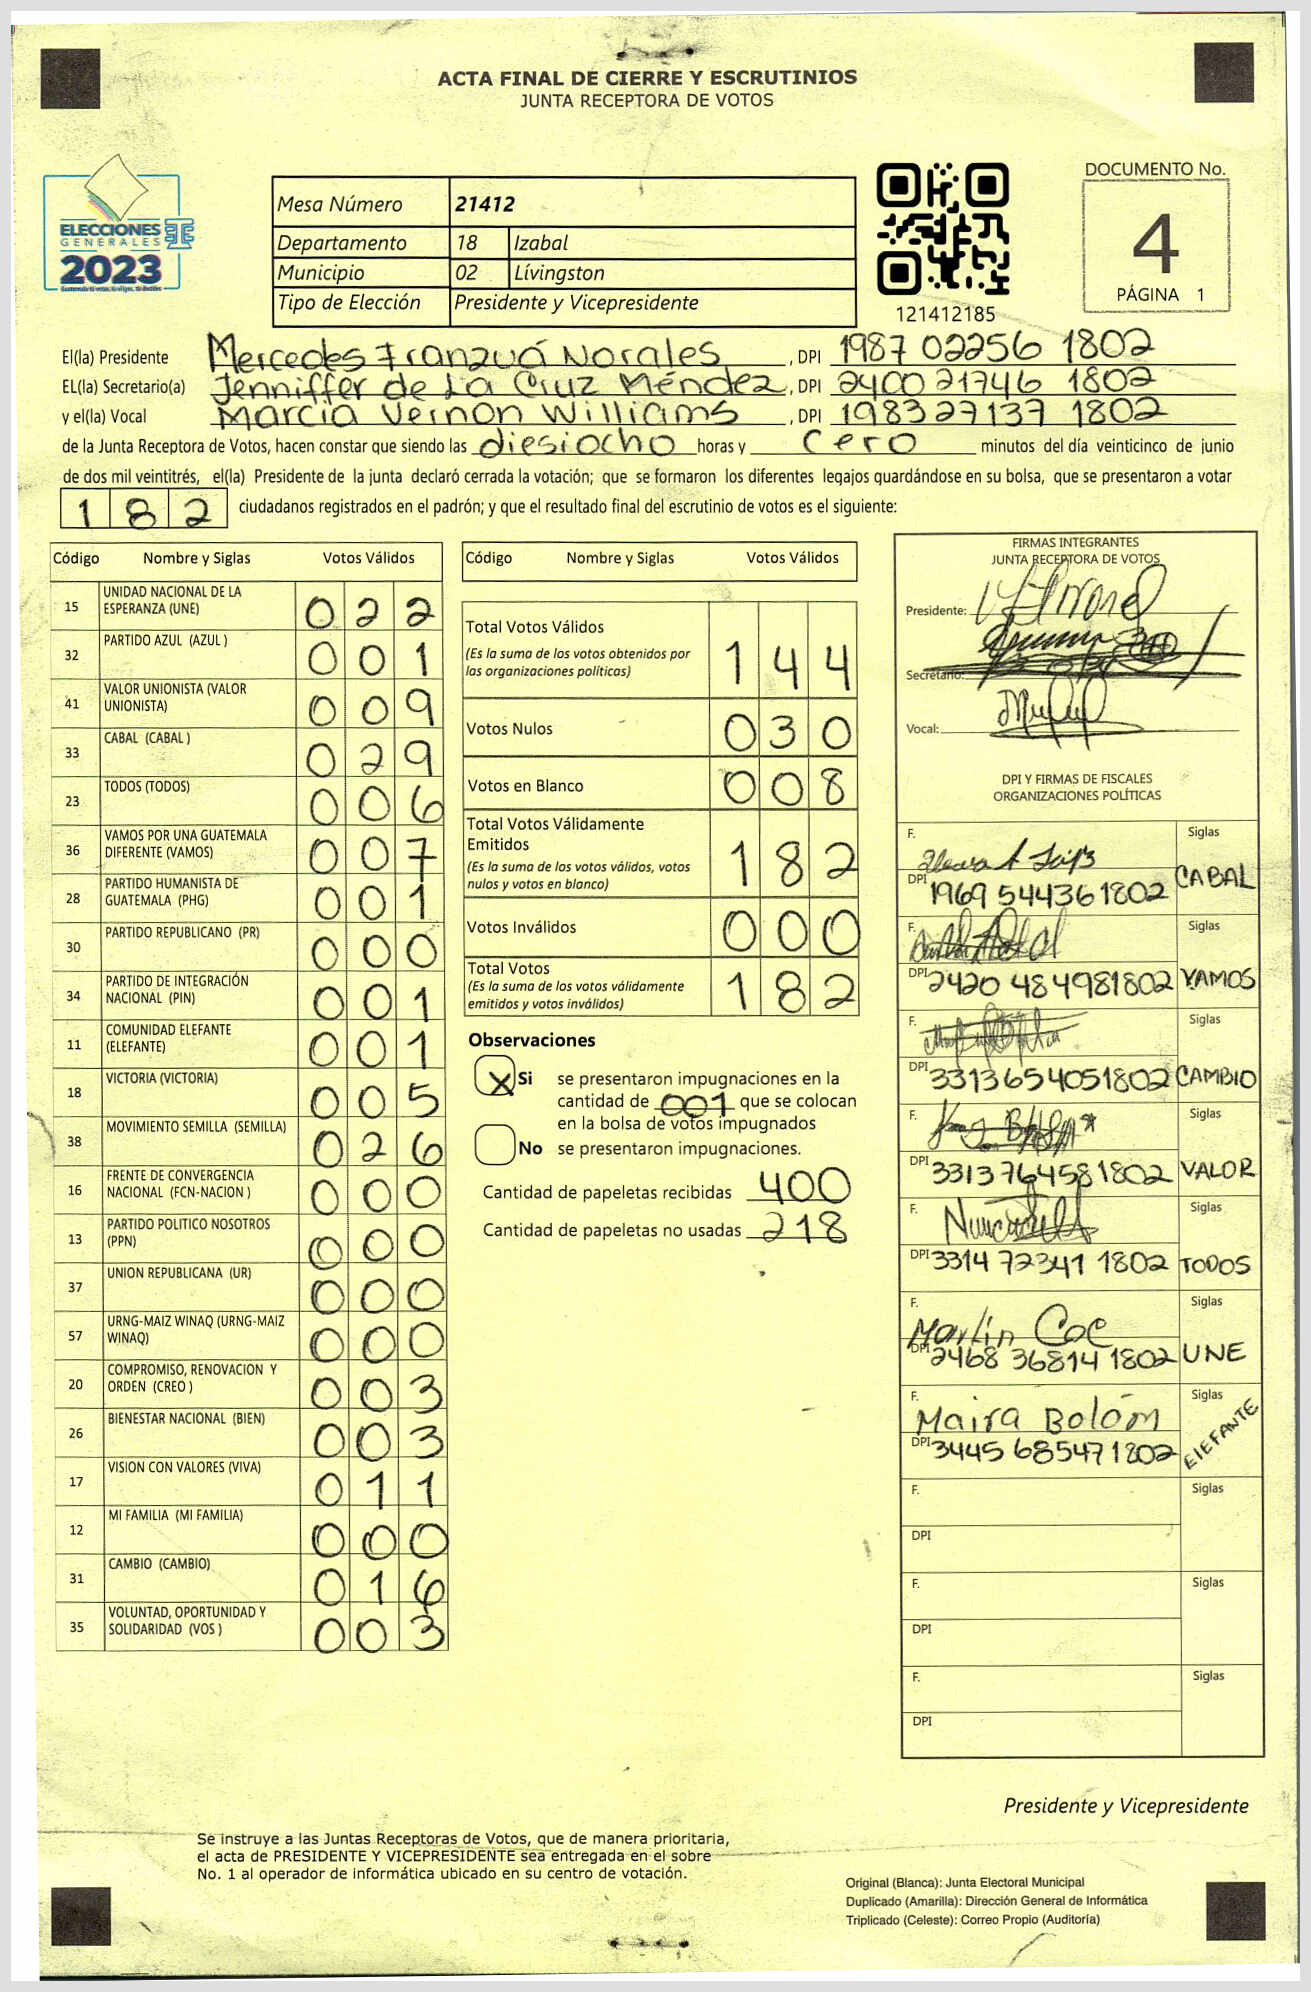 ACTA FINAL DE CIERRE Y ESCRUTINIOS
JUNTA RECEPTORA DE VOTOS
ELECCIONES
GENERALES
2023
Mesa Número 21412
Departamento 18 Izabal
Municipio 02 Lívingston
Tipo de Elección Presidente y Vicepresidente
121412185
DOCUMENTO No.
4
PÁGINA 1
El(la) Presidente Mercedes Franzuá Norales, DPI 1987 02256 1802
EL(la) Secretario(a) Jenniffer de La Cruz Méndez, DPI 2400 21746 1802
y el(la) Vocal Marcia Vernon Williams, DPI 1983 27137 1802
de la Junta Receptora de Votos, hacen constar que siendo las diesiocho horas y cero minutos del día veinticinco de junio
de dos mil veintitrés, el(la) Presidente de la junta declaró cerrada la votación; que se formaron los diferentes legajos guardándose en su bolsa, que se presentaron a votar
182 ciudadanos registrados en el padrón; y que el resultado final del escrutinio de votos es el siguiente:
Código Nombre y Siglas Votos Válidos
15 UNIDAD NACIONAL DE LA ESPERANZA (UNE) 022
32 PARTIDO AZUL (AZUL ) 001
41 VALOR UNIONISTA (VALOR UNIONISTA) 009
33 CABAL (CABAL ) 029
23 TODOS (TODOS) 006
36 VAMOS POR UNA GUATEMALA DIFERENTE (VAMOS) 007
28 PARTIDO HUMANISTA DE GUATEMALA (PHG) 001
30 PARTIDO REPUBLICANO (PR) 000
34 PARTIDO DE INTEGRACIÓN NACIONAL (PIN) 001
11 COMUNIDAD ELEFANTE (ELEFANTE) 001
18 VICTORIA (VICTORIA) 005
38 MOVIMIENTO SEMILLA (SEMILLA) 026
16 FRENTE DE CONVERGENCIA NACIONAL (FCN-NACION ) 000
13 PARTIDO POLITICO NOSOTROS (PPN) 000
37 UNION REPUBLICANA (UR) 000
57 URNG-MAIZ WINAQ (URNG-MAIZ WINAQ) 000
20 COMPROMISO, RENOVACION Y ORDEN (CREO ) 003
26 BIENESTAR NACIONAL (BIEN) 003
17 VISION CON VALORES (VIVA) 011
12 MI FAMILIA (MI FAMILIA) 000
31 CAMBIO (CAMBIO) 016
35 VOLUNTAD, OPORTUNIDAD Y SOLIDARIDAD (VOS ) 003
Código Nombre y Siglas Votos Válidos
Total Votos Válidos 144
(Es la suma de los votos obtenidos por
las organizaciones políticas)
Votos Nulos 030
Votos en Blanco 008
Total Votos Válidamente
Emitidos 182
(Es la suma de los votos válidos, votos
nulos y votos en blanco)
Votos Inválidos 000
Total Votos 182
(Es la suma de los votos válidamente
emitidos y votos inválidos)
Observaciones
X Si se presentaron impugnaciones en la
cantidad de 001 que se colocan
en la bolsa de votos impugnados
No se presentaron impugnaciones.
Cantidad de papeletas recibidas 400
Cantidad de papeletas no usadas 218
FIRMAS INTEGRANTES
JUNTA RECEPTORA DE VOTOS
Presidente:
Secretario:
Vocal:
DPI Y FIRMAS DE FISCALES
ORGANIZACIONES POLÍTICAS
F. Siglas
DPI 1969 54436 1802 CABAL
F. Siglas
DPI 2420 48498 1802 VAMOS
F. Siglas
DPI 3313654051802 CAMBIO
F. Siglas
DPI 3313 76458 1802 VALOR
F. Siglas
DPI 3314 72341 1802 TODOS
F. Marlin Coc Siglas
DPI 2468 36814 1802 UNE
F. Maira Bolóm Siglas
DPI 3445 68547 1802 ElEFANTE
F. Siglas
DPI
F. Siglas
DPI
F. Siglas
DPI
Presidente y Vicepresidente
Se instruye a las Juntas Receptoras de Votos, que de manera prioritaria,
el acta de PRESIDENTE Y VICEPRESIDENTE sea entregada en el sobre
No. 1 al operador de informática ubicado en su centro de votación.
Original (Blanca): Junta Electoral Municipal
Duplicado (Amarilla): Dirección General de Informática
Triplicado (Celeste): Correo Propio (Auditoría)